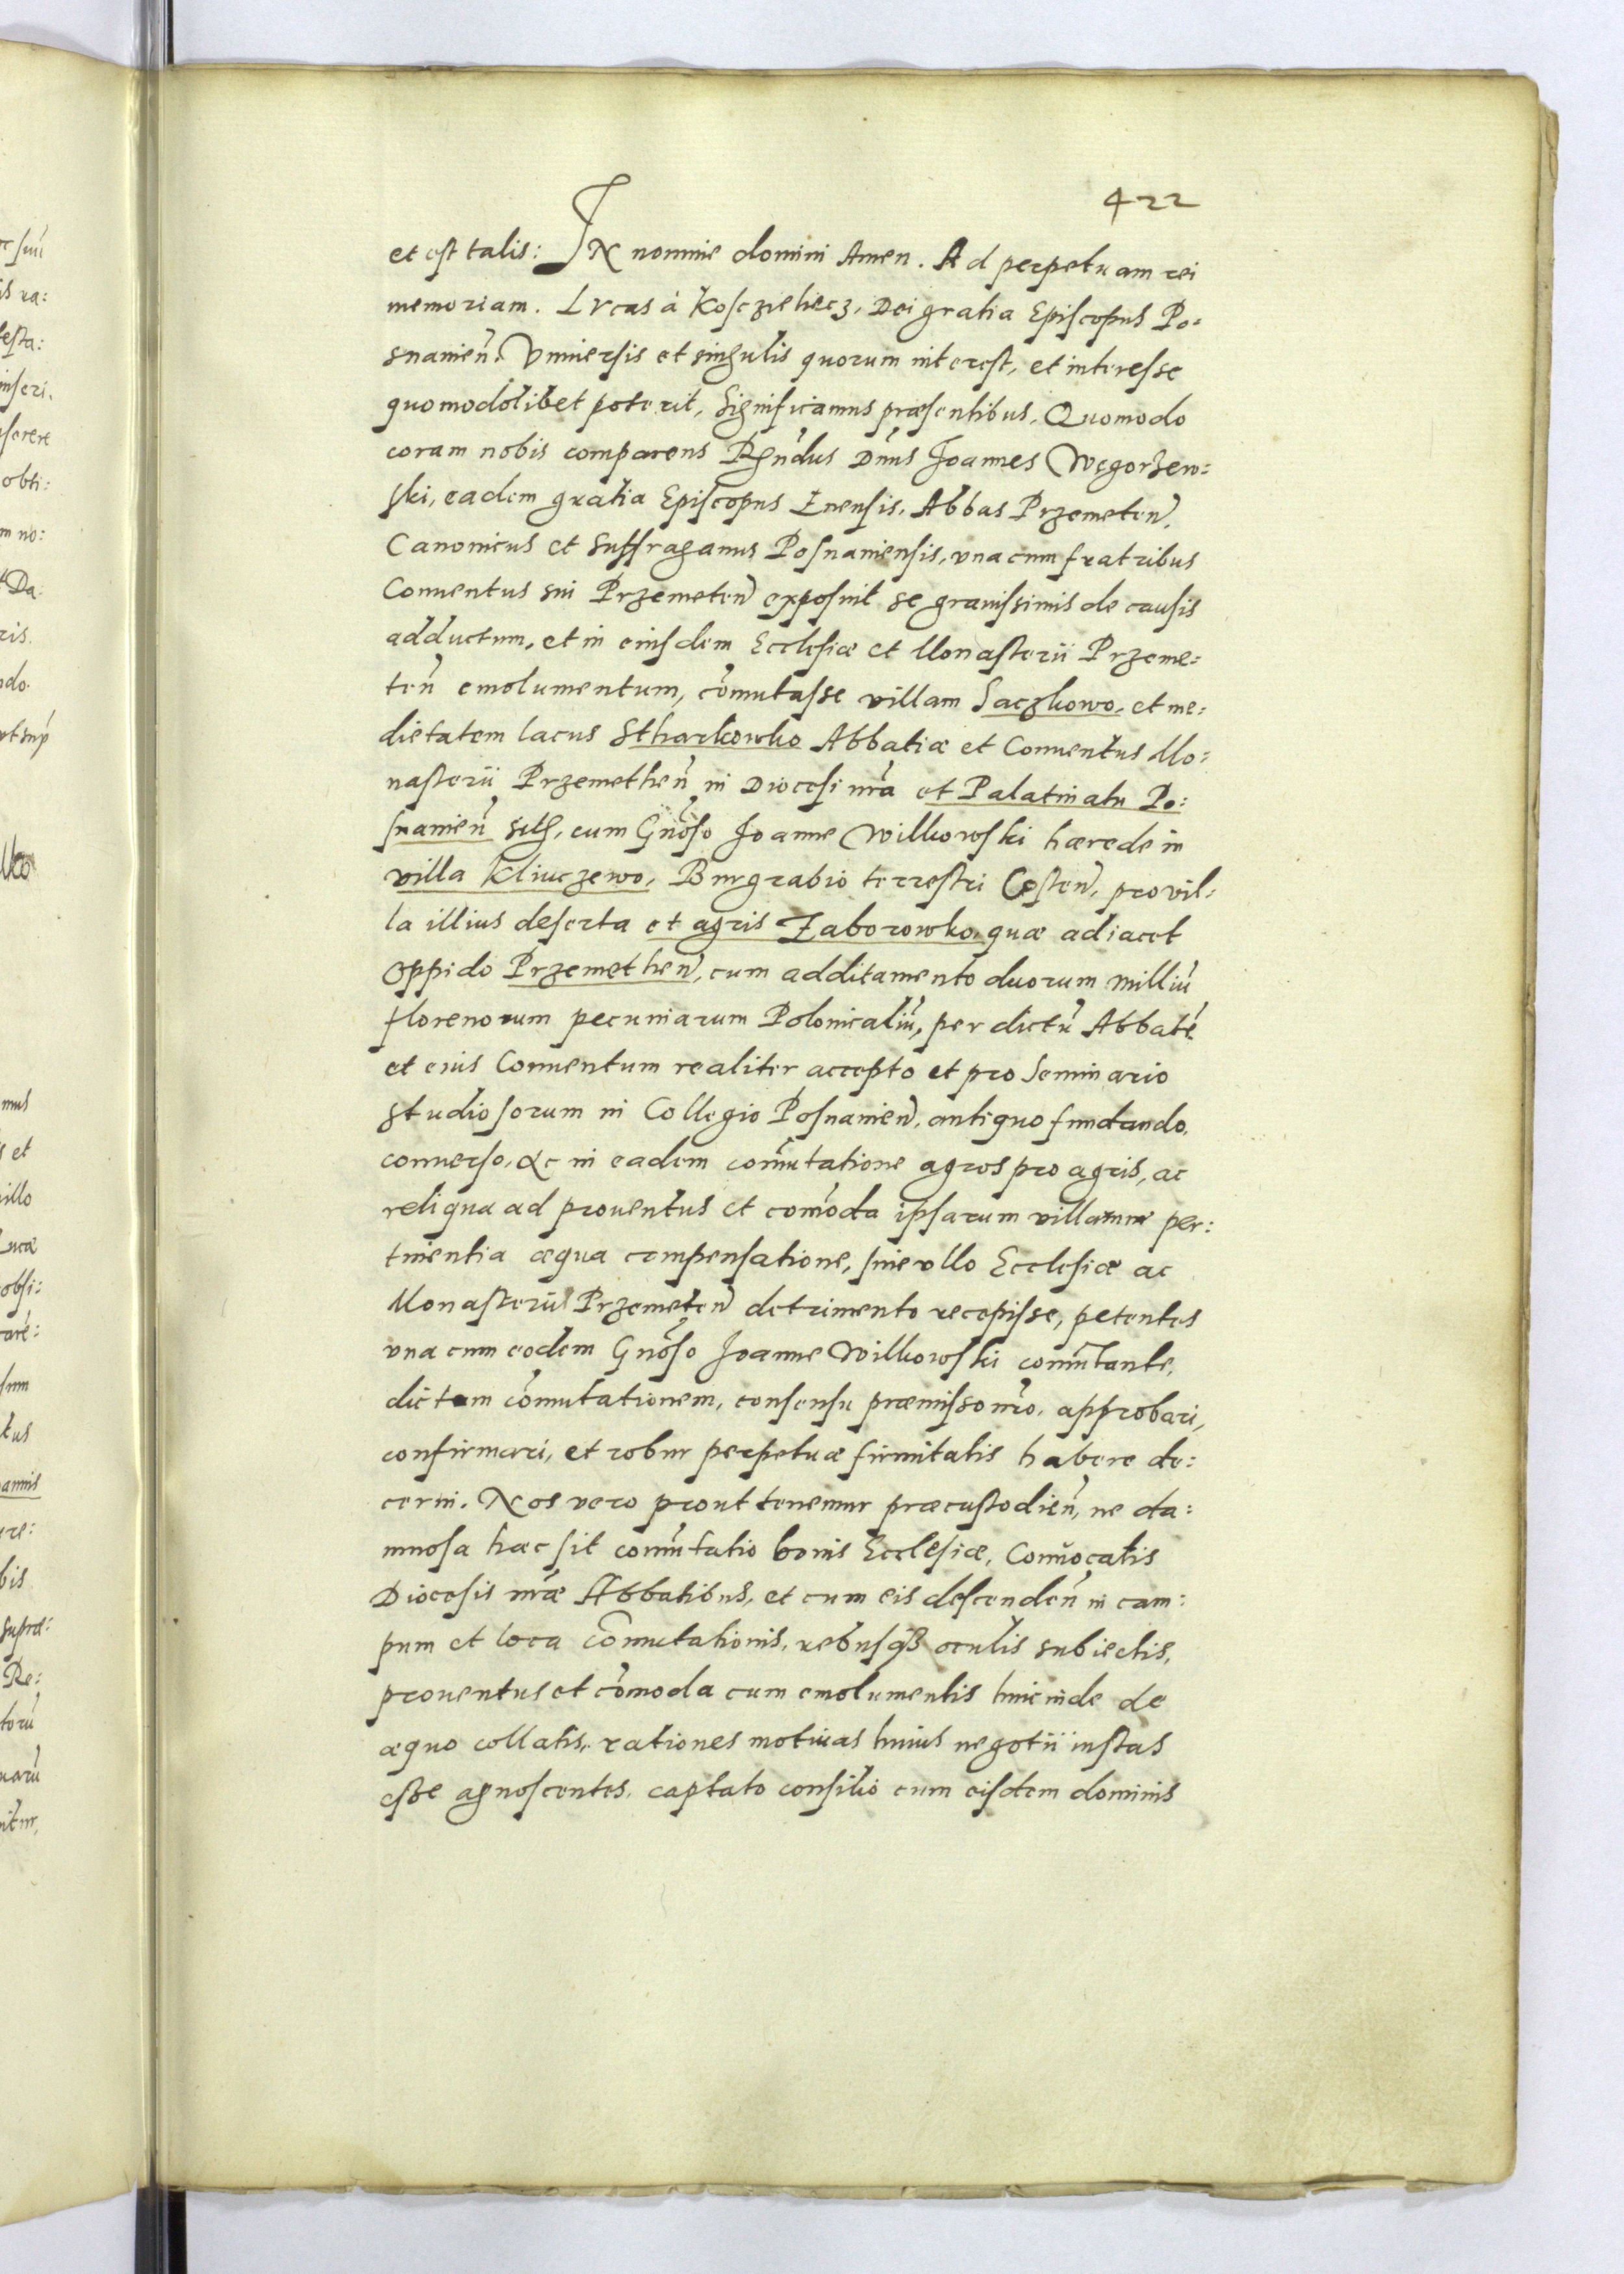 422
et est talis: IN nomine domini Amen. Ad perpetuam rei
memoriam. LVcas à Kosczieliecz, Dei gratia Episcopus Po:
snanień. Vniuersis et singulis quorum interest, et interesse
quomodolibet poterit, Significamus præsentibus. Quomodo
coram nobis comparens Rńdus Dńns Joannes Węgorzew:
ski, eadem gratia Episcopus Enensis, Abbas Przemeteń,
Canonicus et Suffraganus Posnaniensis, vna cum fratribus
Conuentus sui Przemeteń exposuit se grauissimis de causis
adductum, et in eiusdem Ecclesiæ et Monasterii Przeme:
teń emolumentum, cōmutasse villam Saczkowo, et me:
dietatem lacus Stharkowko Abbatiæ et Conuentus Mo:
nasterii Przemetheń in Diocesi nrā et Palatinatu Po:
snanień sitħ, cum Gnōso Joanne Wilkowski hærede in
villa Kliuczewo, Burgrabio terrestri Costeń, pro vil:
la illius deserta et agris Zaborowko, quæ adiacet
Oppido Przemetheń, cum additamento duorum milliū
florenorum pecuniarum Polonicaliū, per dictū Abbatē
et eius Conuentum realiter accepto et pro Seminario
Studiosorum in Collegio Posnanień, antiquo fundando,
conuerso, Ac in eadem com̄utatione agros pro agris, ac
reliqua ad prouentus et com̄oda ipsarum villarum per:
tinentia æqua compensatione, sine vllo Ecclesiæ ac
Monasterii Przemeteń detrimento recepisse, petentes
vna cum eodem Gnōso Joanne Wilkowski com̄utante,
dictam cōmutationem, consensu præmisso nrō, approbari,
confirmari, et robur perpetuæ firmitatis habere de:
cerni. Nos vero prout tenemur præcustodień, ne da:
mnosa hæc sit com̄utatio bonis Ecclesiæ, Conuocatis
Diocesis nrǣ Abbatibus, et cum eis descendeń in cam:
pum et loca cōmutationis, rebusqȝ oculis subiectis,
prouentus et cōmoda cum emolumentis hincinde de
æquo collatis, rationes motiuas huius negotii iustas
esse agnoscentes, captato consilio cum eisdem dominis